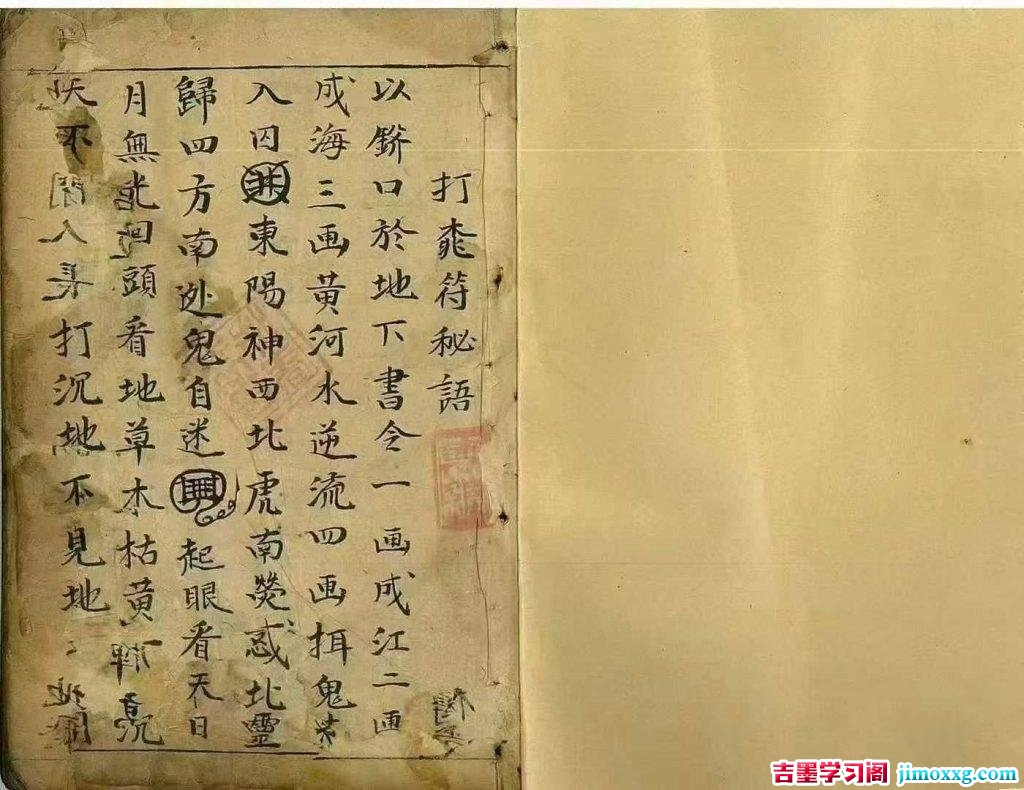 打符秘語
以鉼口於地下書令一画成江二画
成海三画黄河水逆流四画鬼
入囚東陽神西北虎南熒惑北靈
歸四方南鬼自迷起眼看天日
月無光回頭看地草木枯黄沉
天不人打沉地不見地
吉墨学习阁 jimoxxg.com